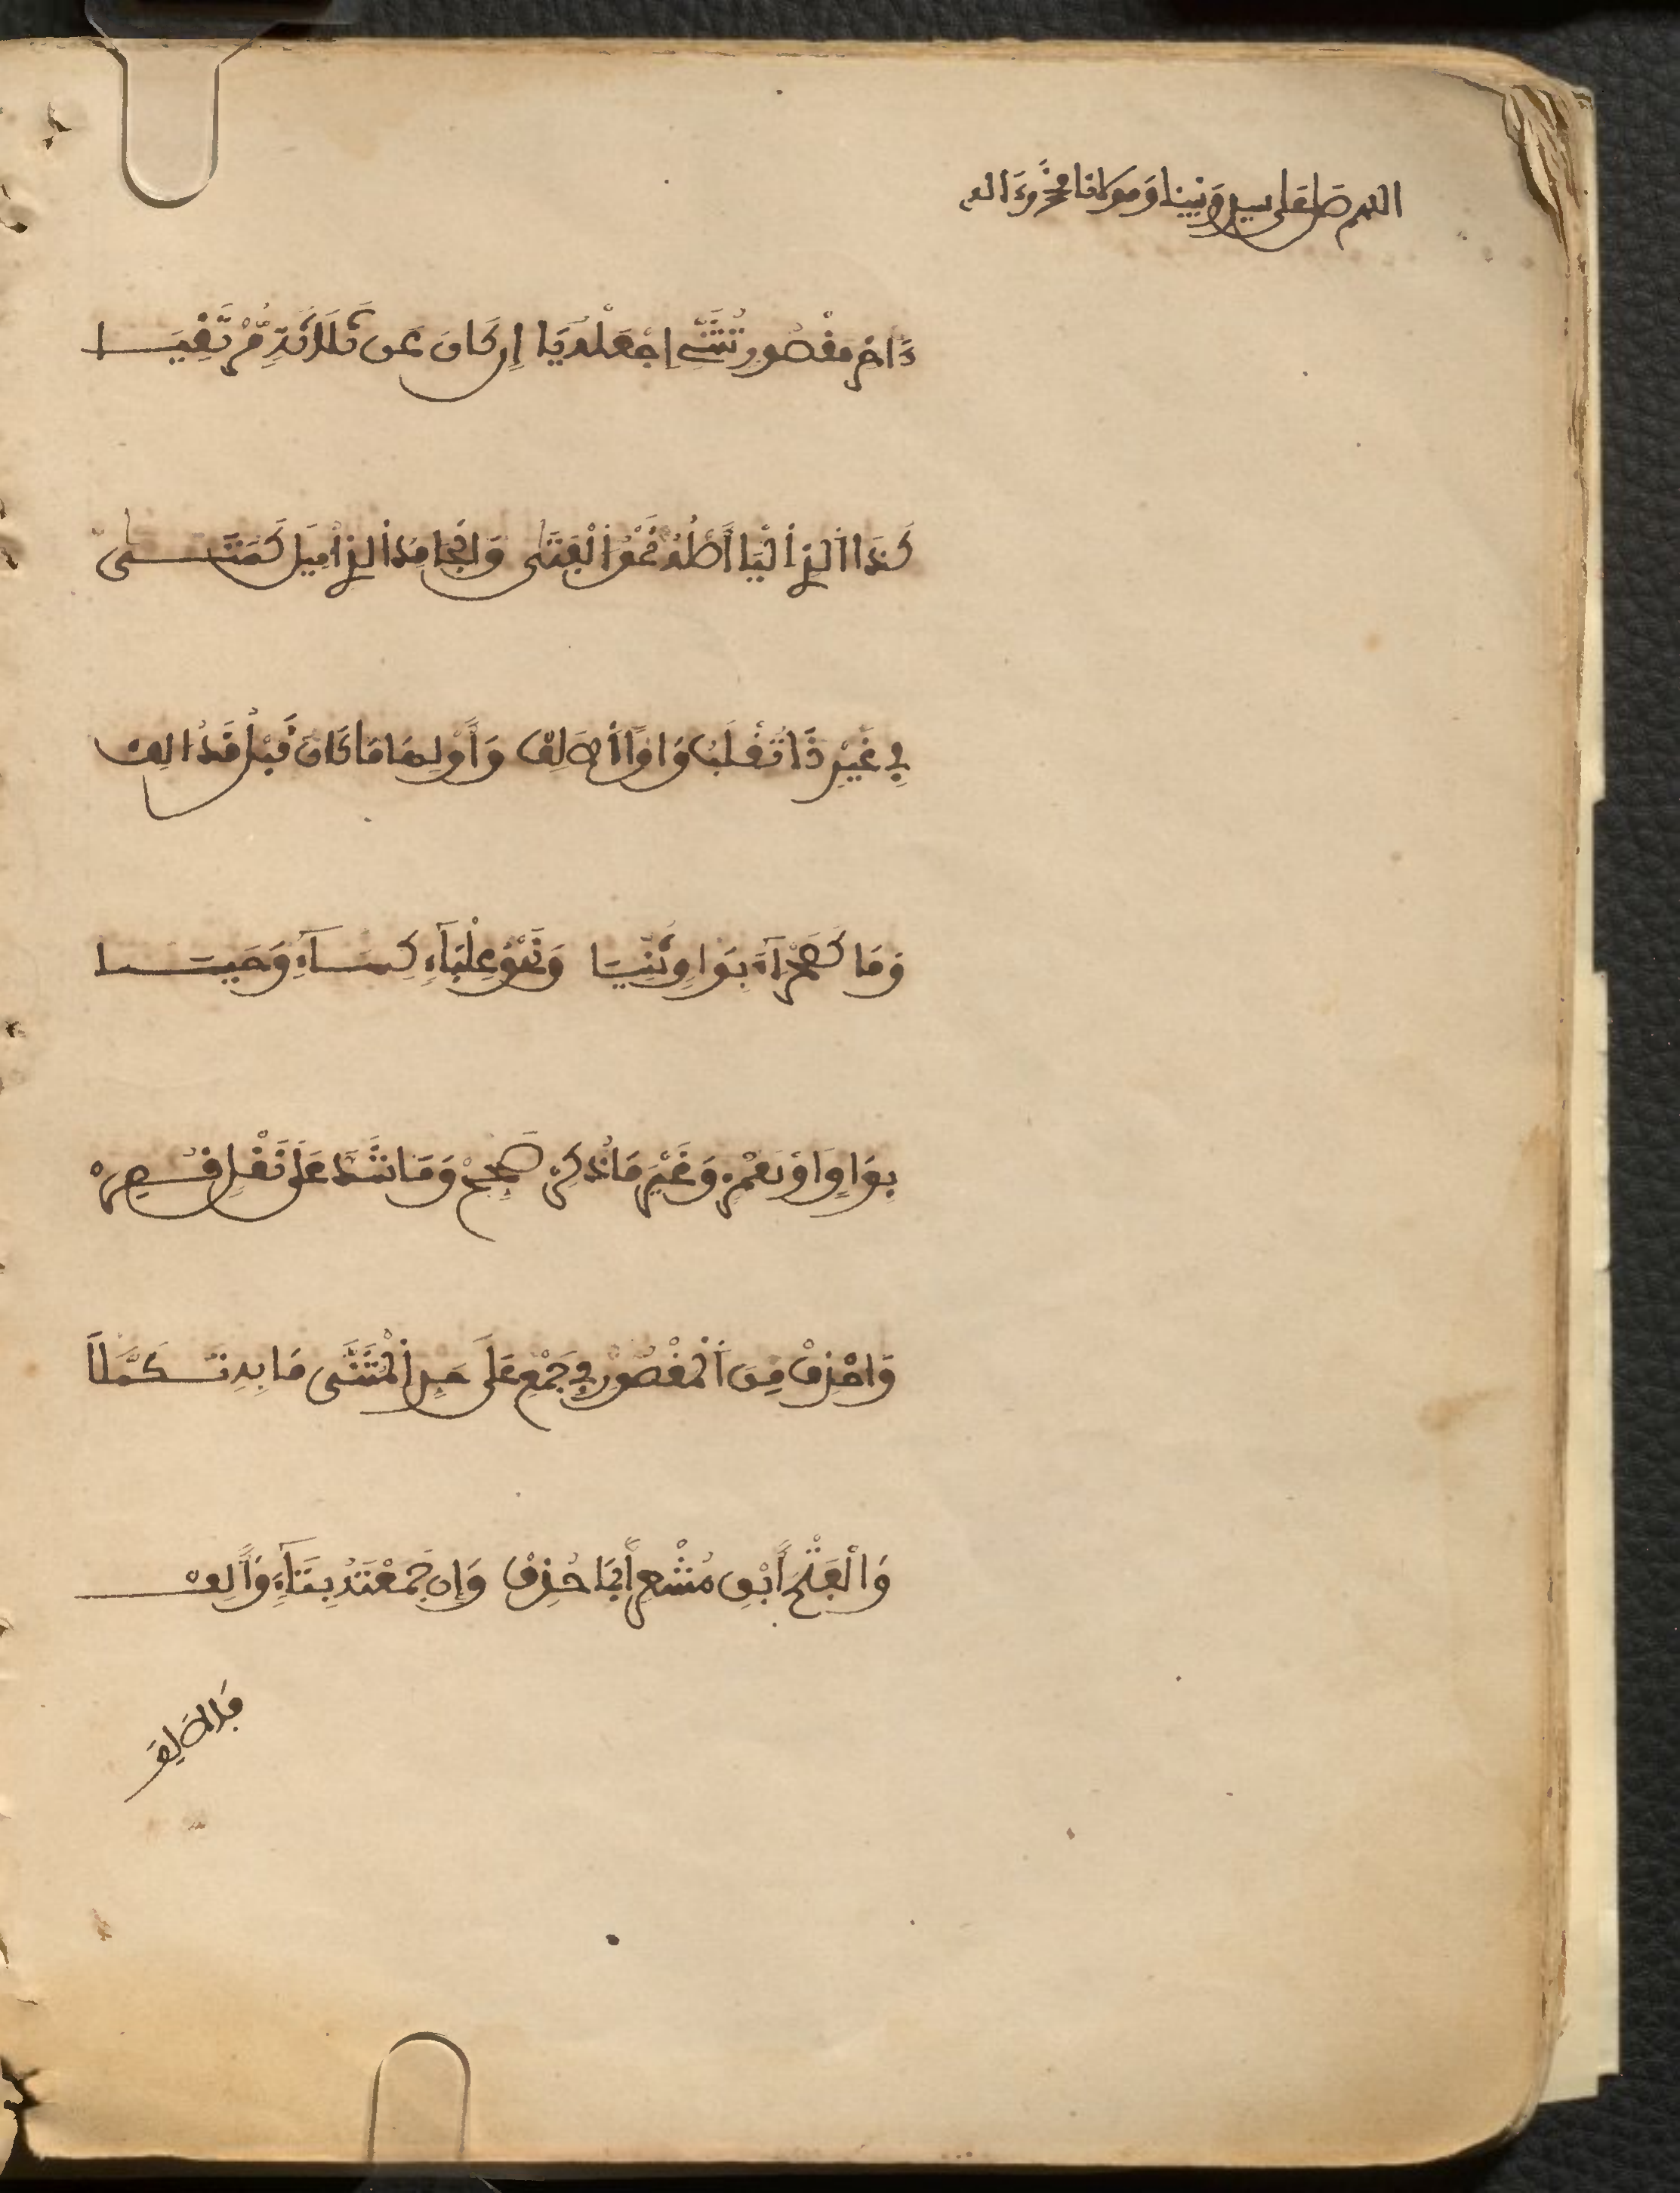 اللهم صل على سيدنا ونبينا ومولانا محمد وءاله
ءَاخِرَ مَقْصُورٍ تُثَنِّي اجْعَلْهُ يَا إِن كَانَ عَن ثَلَاثَةٍ مُّرْتَقِيَا
كَذَا الَّذِي الْيَا أَصْلُهُ نَحْوُ الْفَتَى وَالْجَامِدُ الَّذِي أُمِيلَ كَمَتَى
فِي غَيْرِ ذَا تُقْلَبُ وَاوًا الْأَلِفْ وَأَوْلِهَا مَا كَانَ قَبْلُ قَدْ أُلِفْ
وَمَا كَصَحْرَآءَ بِوَاوٍ ثُنِّيَا وَنَحْوُ عِلْبَآءٍ كِسَآءٍ وَحَيَا
بِوَاوٍ اَوْ هَمْزٍ وَغَيْرَ مَا ذُكِرْ صَحِّحْ وَمَا شَذَّ عَلَى نَقْلٍ قُصِرْ
وَاحْذِفْ مِنَ الْمَقْصُورِ فِي جَمْعٍ عَلَى حَدِّ الْمُثَنَّى مَا بِهِ تَكَمَّلَا
وَالْفَتْحَ أَبْقِ مُشْعِرًا بِمَا حُذِفْ وَإِن جَمَعْتَهُ بِتَآءٍ وَأَلِفْ
فالالف